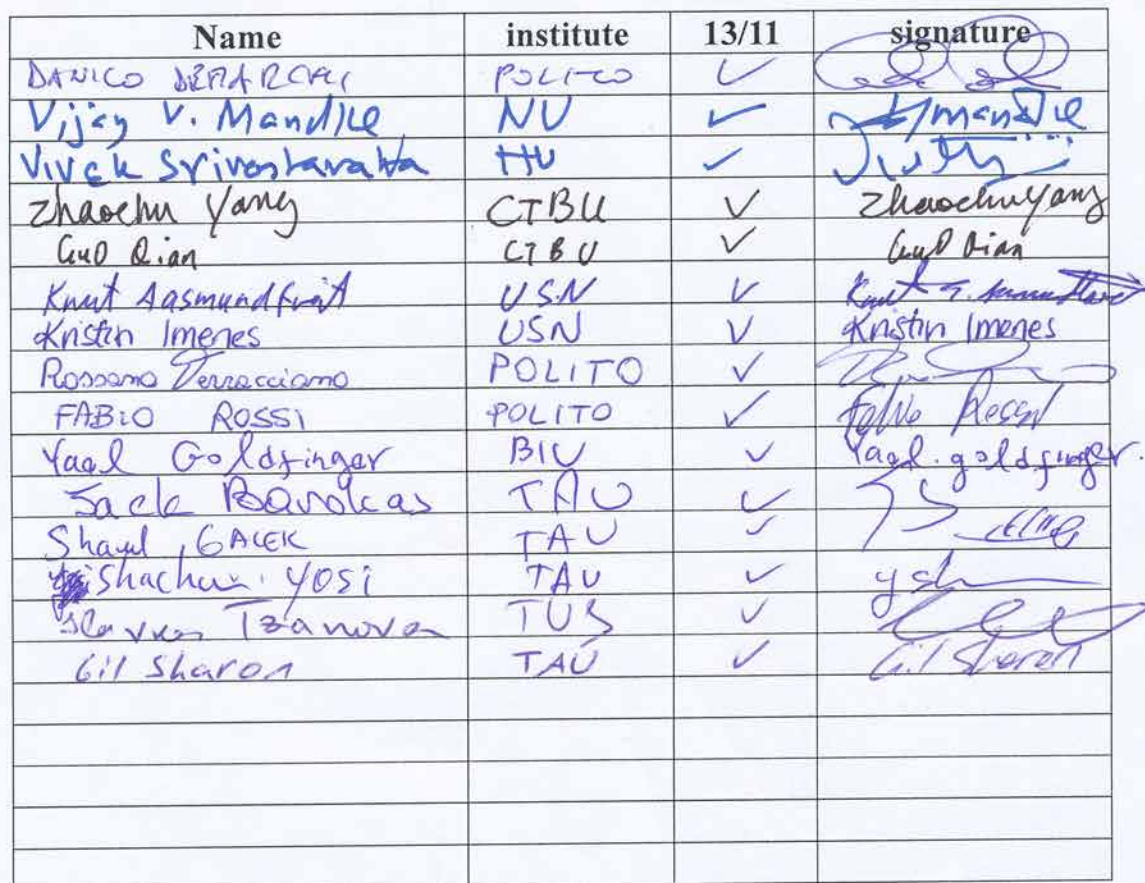 Name institute 13/11 signature
DANILO DEMARCHI POLITO ✓
Vijay V. Mandke NU ✓ Mandke
Vivek Srivastava HU ✓
Zhaochu Yang CTBU ✓ Zhaochu Yang
Guo Qian CTBU ✓ Guo Qian
Knut Aasmundtveit USN ✓ Knut
Kristin Imenes USN ✓ Kristin Imenes
Rossana Terracciano POLITO ✓
FABIO ROSSI POLITO ✓ Fabio Rossi
Yael Goldfinger BIU ✓ Yael.goldfinger.
Jack Barokas TAU ✓
Shaul GALEK TAU ✓
Shachum YOSi TAU ✓
Slavka Tzanova TUS ✓
Gil Sharon TAU ✓ Gil Sharon